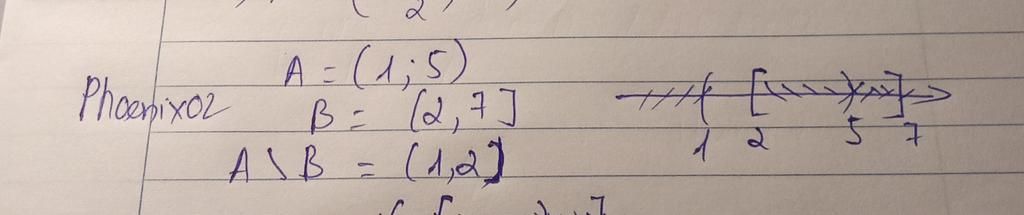 A = (1; 5)
Phoenix02
B = [2, 7]
A \ B = (1, 2)
1 2 5 7